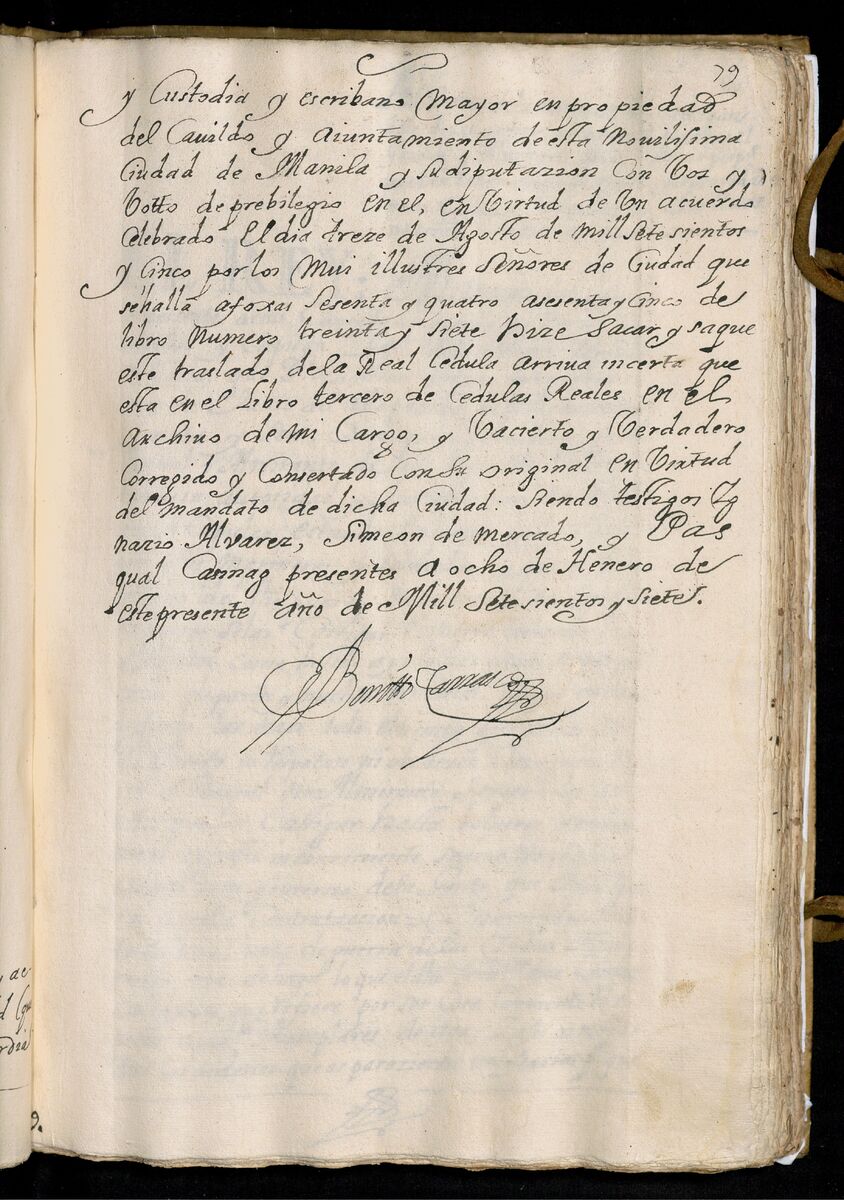 79
y Custodia y escribano Mayor en propiedad
del Cauildo y Aiuntamiento de esta Novilisima
Ciudad de Manila y su diputazion Con Vos y
Votto de prebilegio en el, en Virtud de Vn acuerdo
Celebrado El dia treze de Agosto de mill Setesientos
y Cinco por los Mui illustres Señores de Ciudad que
sehalla afoxas Sesenta y quatro asesenta y Cinco de
libro numero treinta y Siete hize Sacar y saque
este traslado dela Real Cedula arriua incerta que
esta en el Libro tercero de Cedulas Reales en el
Archiuo de mi Cargo, y Vacierto y Verdadero
Corregido y Consertado Con su original en Virtud
del mandato de dicha Ciudad: siendo testigos Ig
nazio Alvarez, Simeon de mercado, y Pas
qual Casinag presentes a ocho de Henero de
este presente año de Mill Setesientos y siete.
y ac
rdia
9.